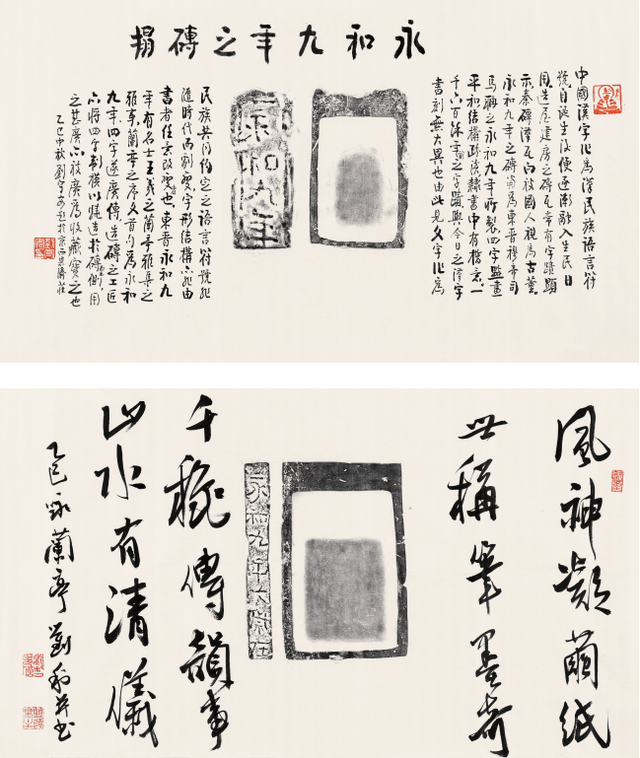 永和九年之磚搨
中國漢字作為漢民族語言符
號自誕生後便逐漸融入生民日
用造屋建房之磚瓦常有字蹟顯
示秦磚漢瓦向被國人視為古董
永和九年之磚當為東晉穆帝司
馬聃之永和九年所製四字豎畫
平和結構疏淡隸書中有楷意一
千六百之字蹟與今日之漢字
書刻無大異也由此見文字作為
永和九年
民族共同約定之語言符號能
隨時代而刻變字形結構亦能由
書者任意改變也東晉永和九
年有名士王羲之蘭亭雅集之
雅事蘭亭之序文首句為永和
九年四字遂廣傳造磚之工匠
亦將四字刻模以燒造於磚側用
之甚廣亦被廣為收藏寶之也
乙巳中秋劉於京西莊
風神凝繭紙
世稱筆墨奇
永和九年六
千穐傳韻事
山水有清儀
乙巳詠蘭亭劉書